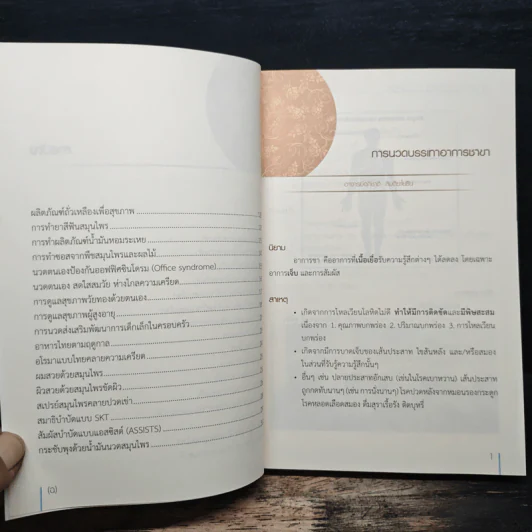 ผลิตภัณฑ์ถั่วเหลืองเพื่อสุขภาพ
การทำยาสีฟันสมุนไพร
การทำผลิตภัณฑ์น้ำมันหอมระเหย
การทำซอสจากพืชสมุนไพรและผลไม้
นวดตนเองป้องกันออฟฟิศซินโดรม (Office syndrome)
นวดตนเอง สดใสสมวัย ห่างไกลความเครียด
การดูแลสุขภาพวัยทองด้วยตนเอง
การดูแลสุขภาพผู้สูงอายุ
การนวดส่งเสริมพัฒนาการเด็กเล็กในครอบครัว
อาหารไทยตามฤดูกาล
อโรมาแบบไทยคลายความเครียด
ผมสวยด้วยสมุนไพร
ผิวสวยด้วยสมุนไพรขัดผิว
สเปรย์สมุนไพรคลายปวดเข่า
สมาธิบำบัดแบบ SKT
สัมผัสบำบัดแบบแอสซิสต์ (ASSISTS)
กระชับพุงด้วยน้ำมันนวดสมุนไพร
(ด)
การนวดบรรเทาอาการชาขา
นิยาม
อาการชา คืออาการที่เนื้อเยื่อรับความรู้สึกต่างๆ ได้ลดลง โดยเฉพาะ
อาการเจ็บ และการสัมผัส
สาเหตุ
• เกิดจากการไหลเวียนโลหิตไม่ดี ทำให้มีการติดขัดและมีพิษสะสม
เนื่องจาก 1. คุณภาพบกพร่อง 2. ปริมาณบกพร่อง 3. การไหลเวียน
บกพร่อง
• เกิดจากมีการบาดเจ็บของเส้นประสาท ไขสันหลัง และ/หรือสมอง
ในส่วนที่รับรู้ความรู้สึกนั้นๆ
• อื่นๆ เช่น ปลายประสาทอักเสบ (เช่นในโรคเบาหวาน) เส้นประสาท
ถูกกดทับนานๆ (เช่น การนั่งนานๆ) โรคปวดหลังจากหมอนรองกระดูก
โรคหลอดเลือดสมอง ดื่มสุราเรื้อรัง ติดบุหรี่
1